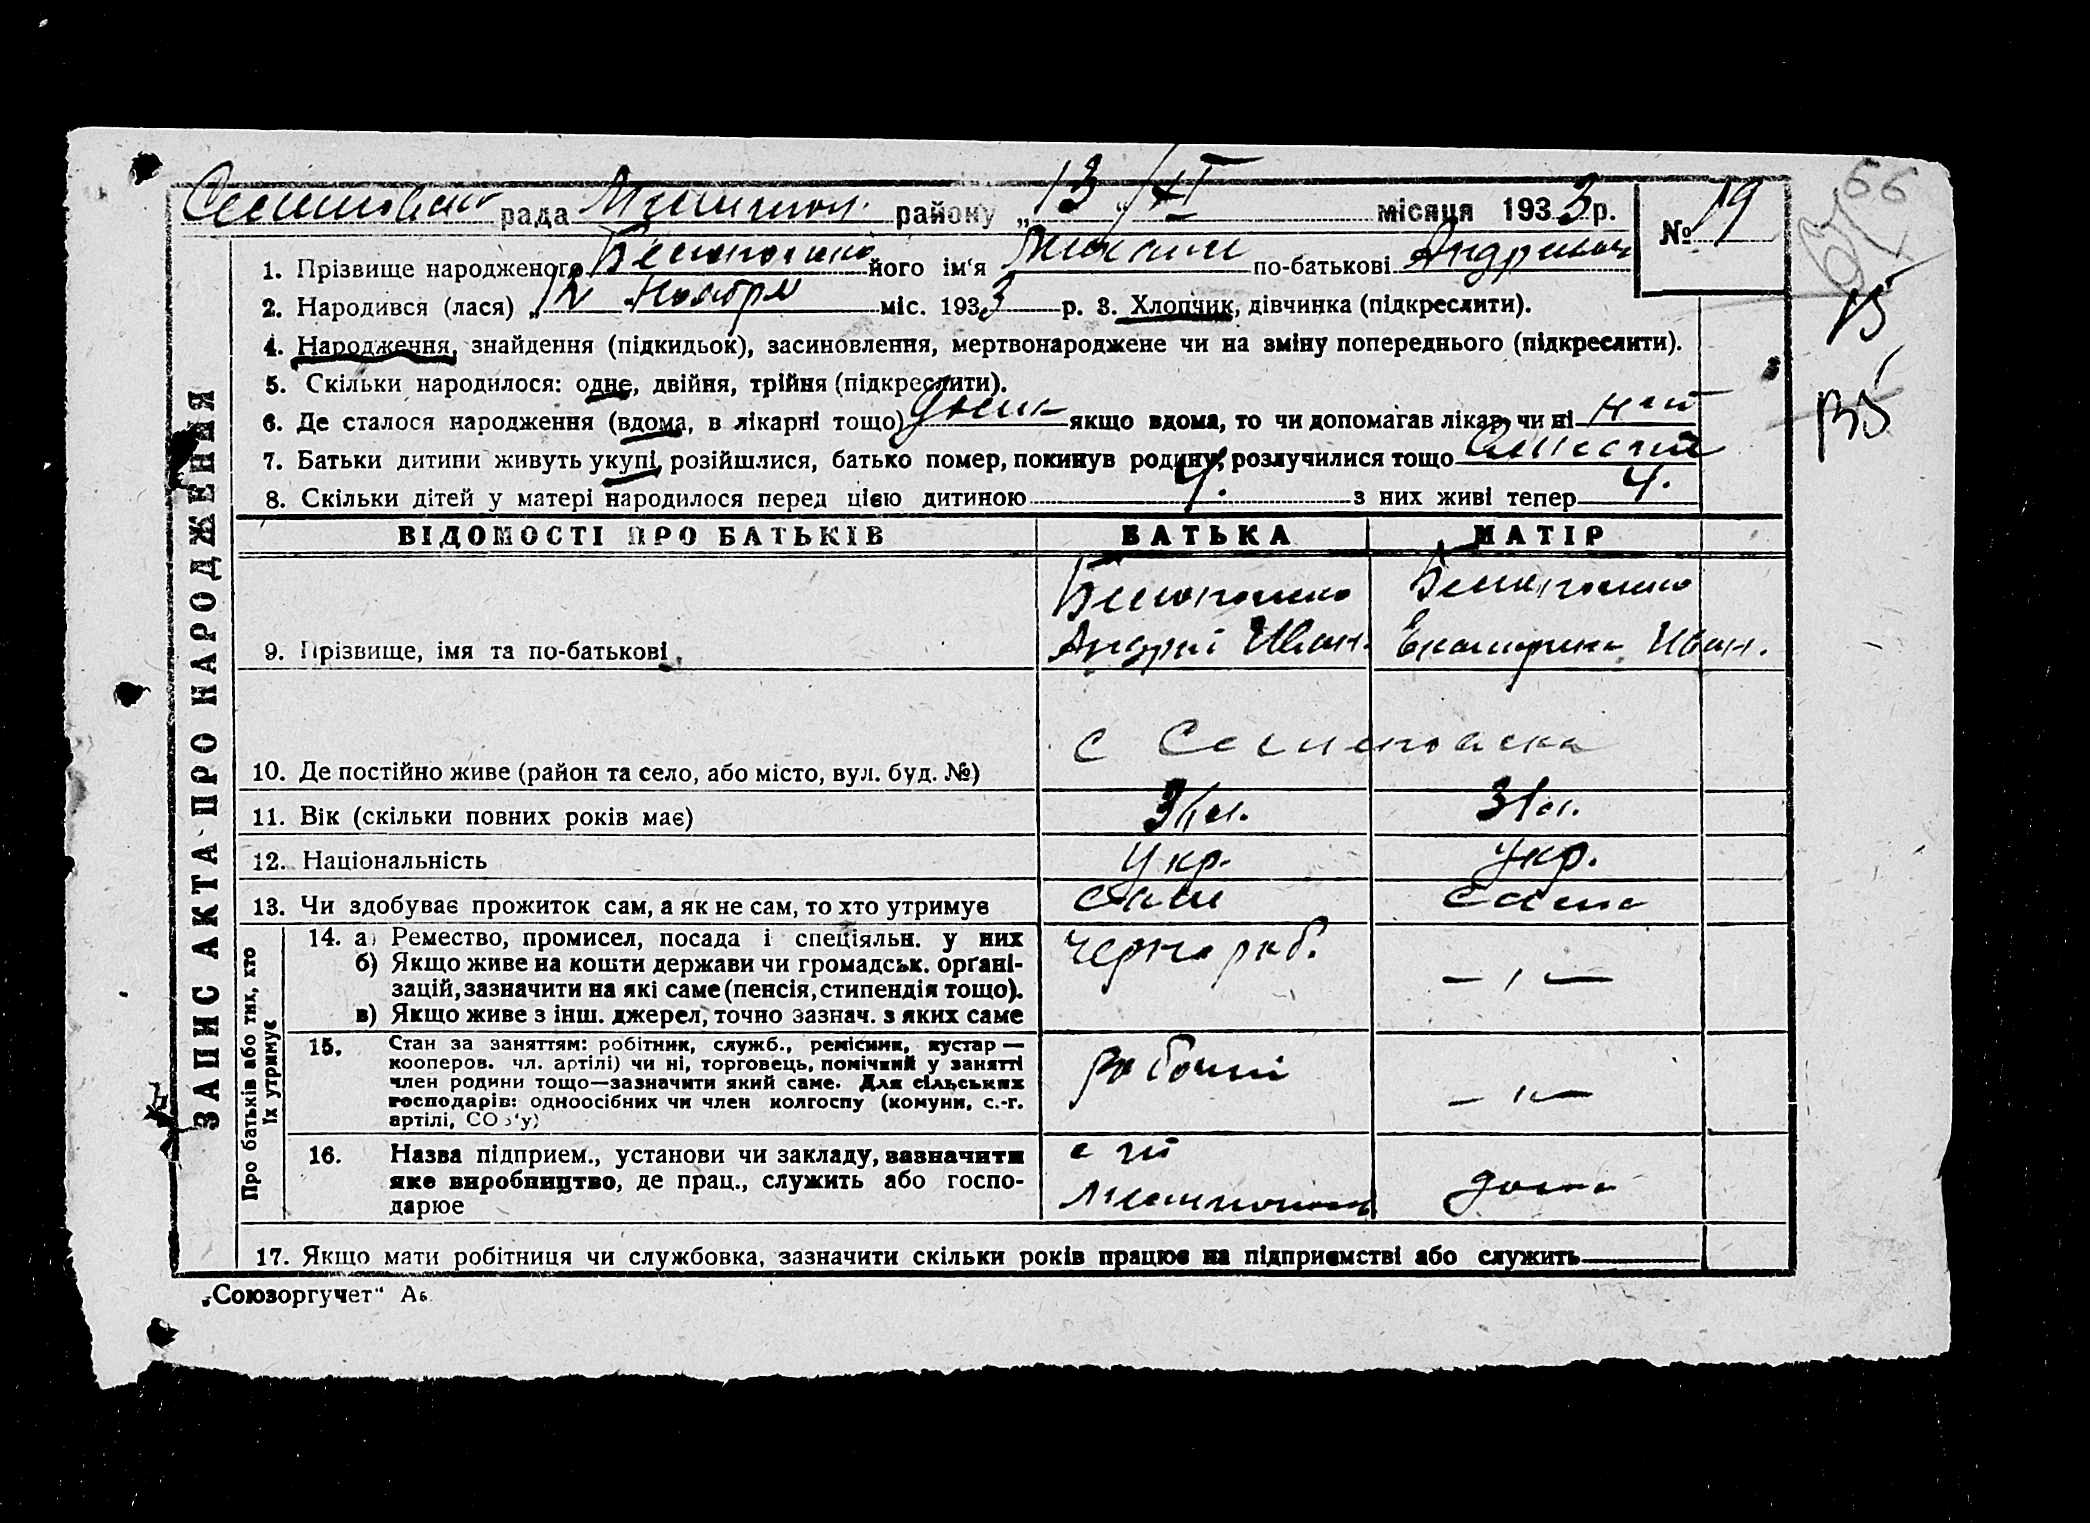 рада району „13 XI місяця 1933 р. № 19
66
1. Прізвище народженого його ім‘я по-батькові
2. Народився (лася) „12 Ноября міс. 1933 р. 3. Хлопчик, дівчинка (підкреслити).
4. Народження, знайдення (підкидьок), засиновлення, мертвонароджене чи на зміну попереднього (підкреслити).
5. Скільки народилося: одне, двійня, трійня (підкреслити).
6. Де сталося народження (вдома, в лікарні тощо) якщо вдома, то чи допомагав лікар, чи ні
7. Батьки дитини живуть укупі, розійшлися, батько помер, покинув родину, розлучилися тощо
8. Скільки дітей у матері народилося перед цією дитиною 4. з них живі тепер 4.
ВІДОМОСТІ ПРО БАТЬКІВ БАТЬКА МАТІР
9. Прізвище, імя та по-батькові Андрій Иван. Екатерина Иван.
10. Де постійно живе (район та село, або місто, вул. буд. №) с Семеновка
11. Вік (скільки повних років має) 31
12. Національність Укр. Укр.
13. Чи здобуває прожиток сам, а як не сам, то хто утримує сам сама
14. а) Ремество, промисел, посада і спеціяльн. у них чернораб. — „ —
б) Якщо живе на кошти держави чи громадськ. орґані-
зацій, зазначити на які саме (пенсія, стипендія тощо).
в) Якщо живе з інш. джерел, точно зазнач. з яких саме
15. Стан за заняттям: робітник, служб., ремісник, кустар —
кооперов. чл. артілі) чи ні, торговець, помічний у занятті
член родини тощо—зазначити який саме. Для сільських
господарів: одноосібних чи член колгоспу (комуни, с.-г.
артілі, СОЗ‘у) рабочий — „ —
16. Назва підприєм., установи чи закладу, зазначити
яке виробництво, де прац., служить або госпо-
дарює дома
17. Якщо мати робітниця чи службовка, зазначити скільки років працює на підприємстві або служить
ЗАПИС АКТА ПРО НАРОДЖЕННЯ
Про батьків або тих, хто
їх утримує
„Союзоргучет“